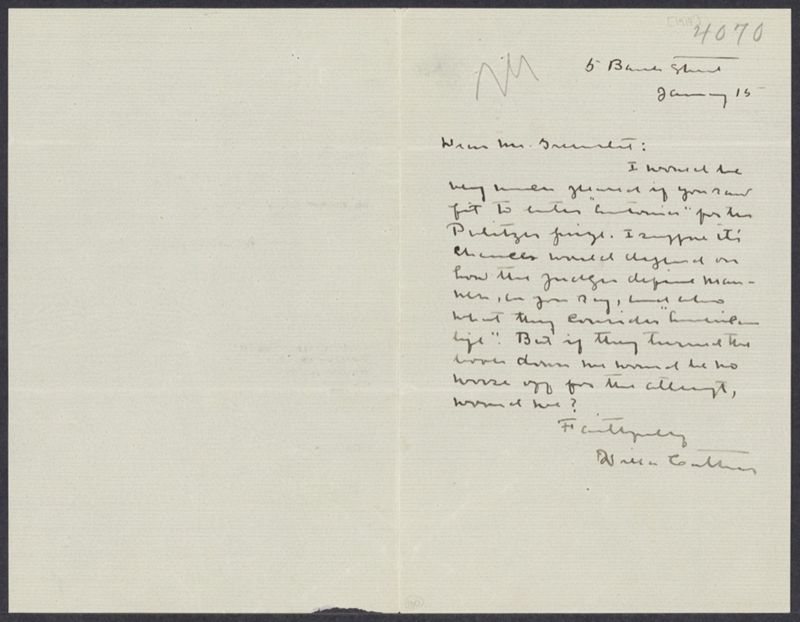 [1919]
4070
5 Bank Street
January 15
Dear Mr. Greenslet:
I would be
very much pleased if you saw
fit to enter "Antonia" for the
Pulitzer prize. I suppose it's
chances would depend on
how the judges define man-
ners, as you say, and also
what they consider "American
life". But if they turned the
book down we would be no
worse off for the attempt,
would we?
Faithfully
Willa Cather